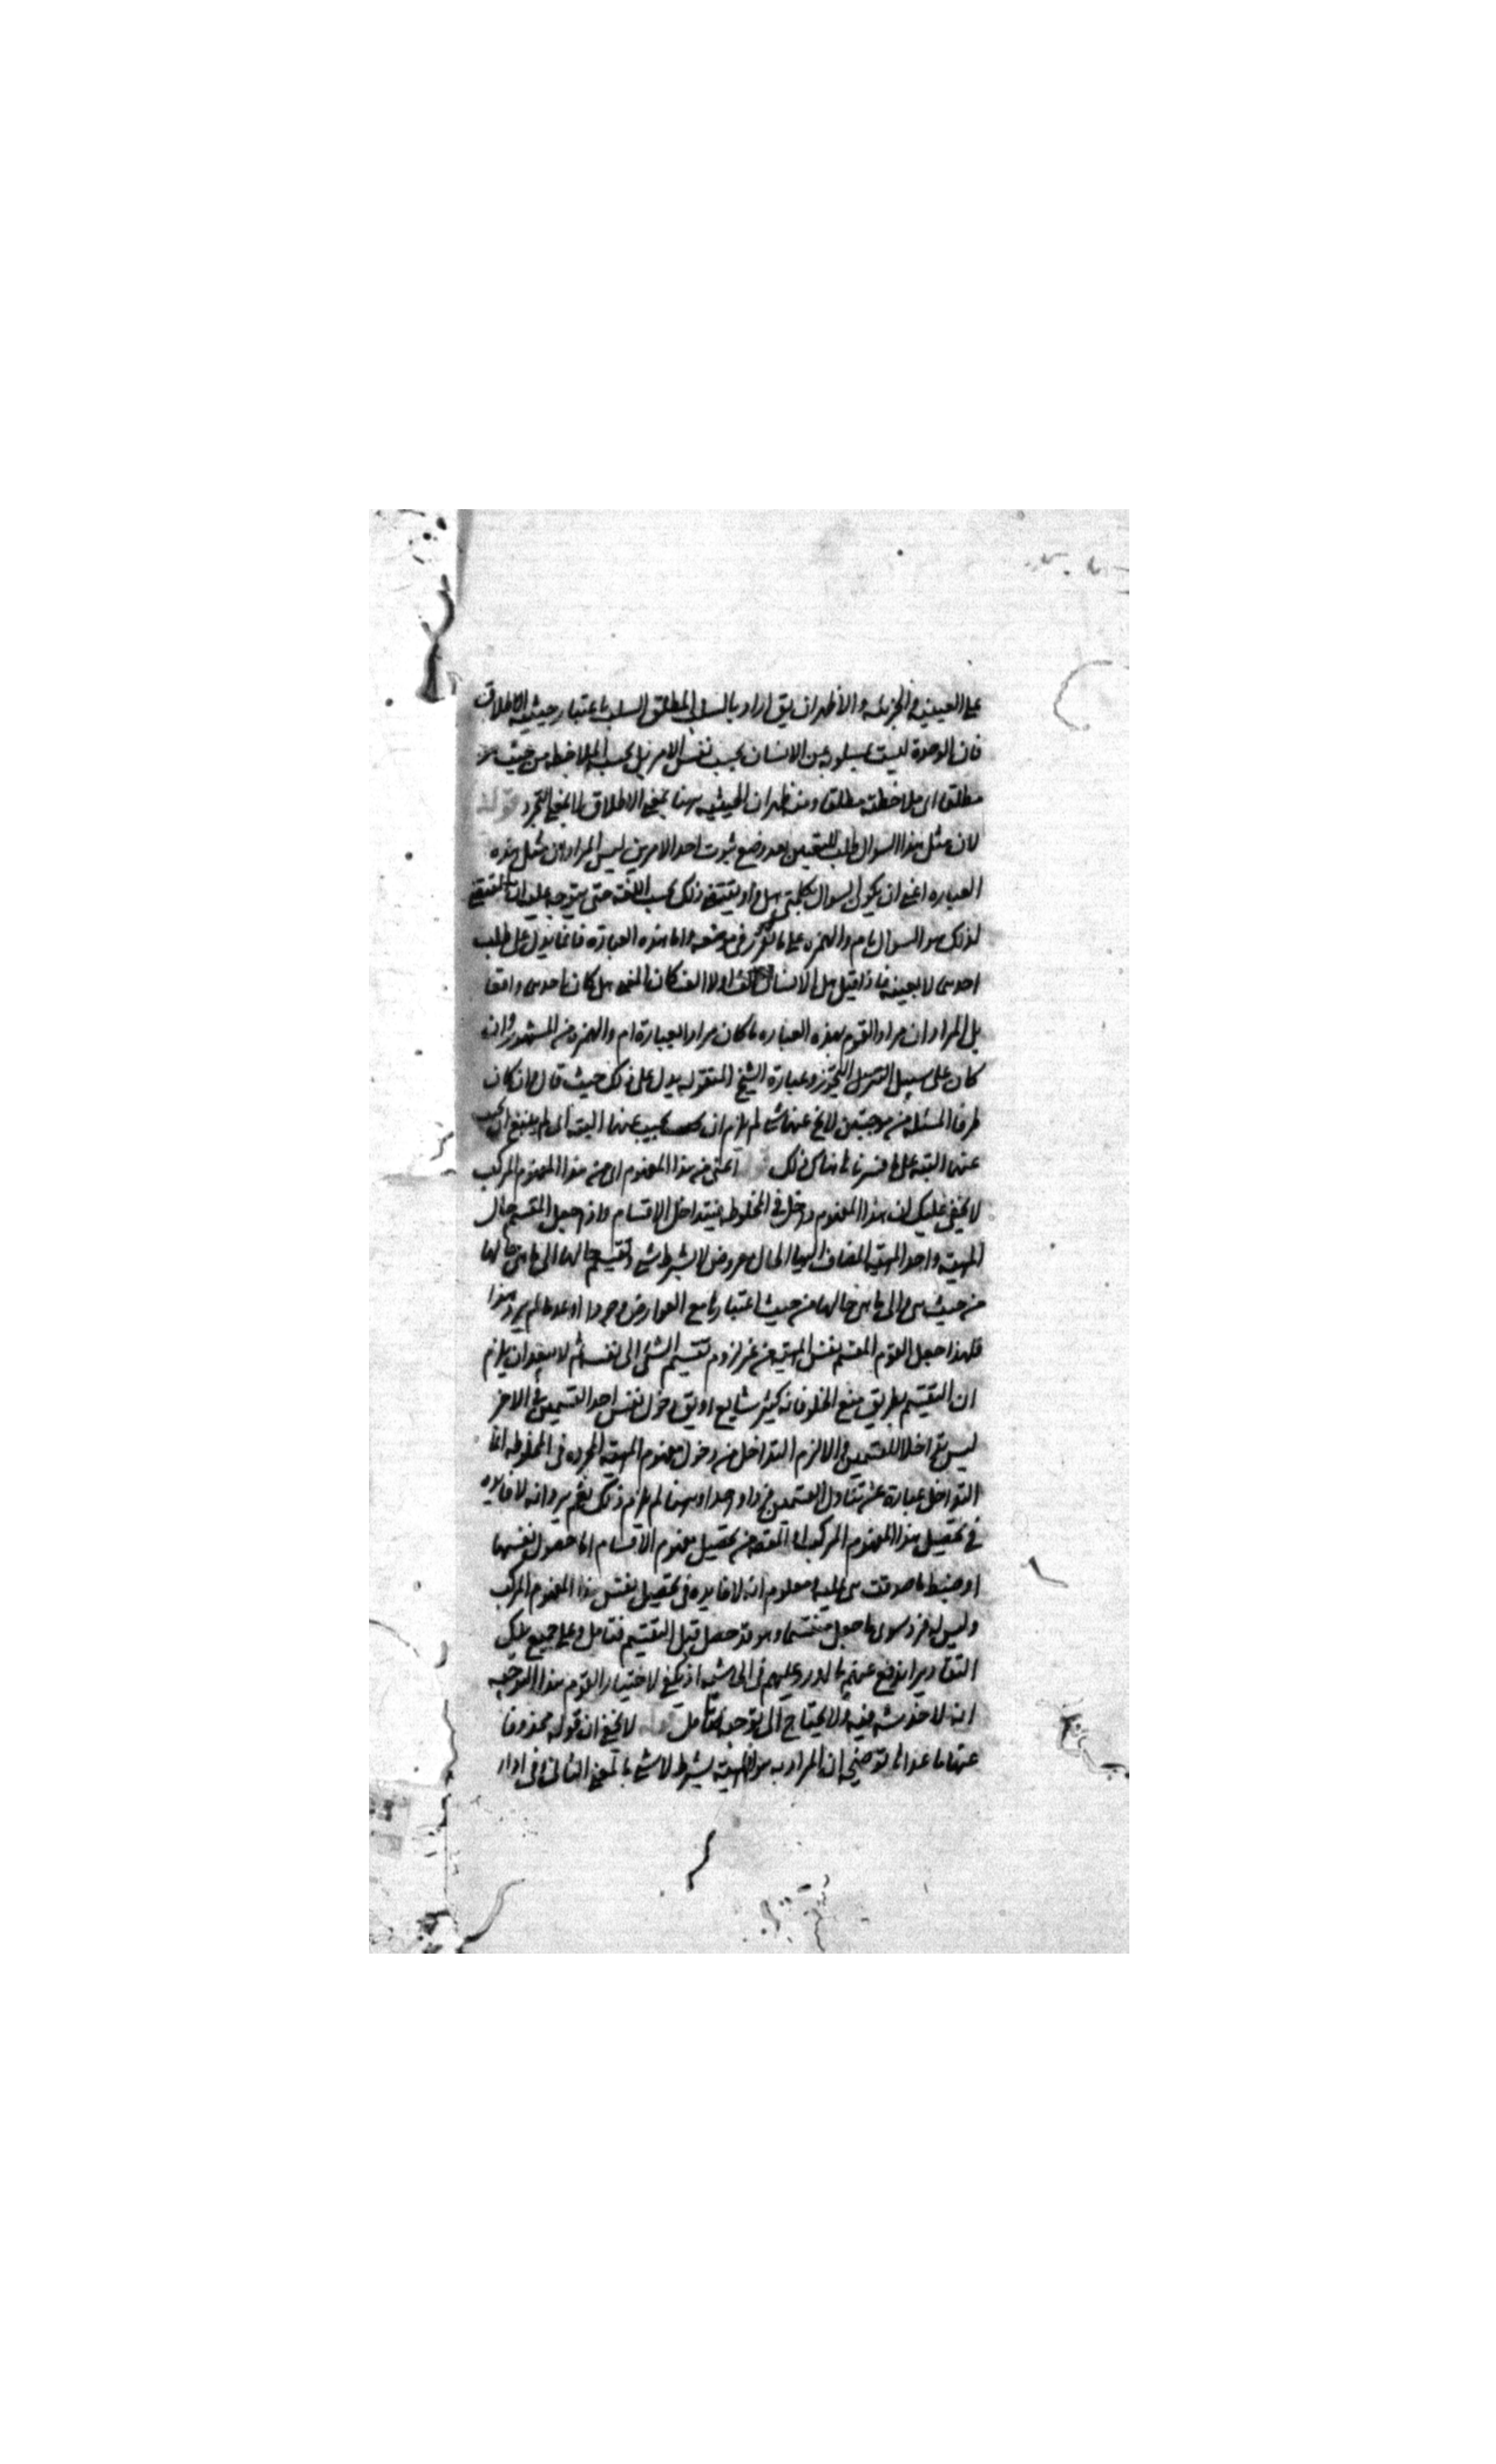 على العينية والجزئية والأظهر ان يق اراد بالسلب المطلق السلب باعتبار حيثية الاطلاق
فان الوحدة ليست مسلوبة عن الانسان بحسب نفس الامر بل بحسب الملاحظة من حيث هو
مطلق اى ملاحظته مطلقا ومنه ظهر ان الحيثية ههنا بمعنى الاطلاق لا بمعنى التجرد قوله
لان مثل هذا السوال طلب التعيين بعد وضع ثبوت احد الامرين ليس المراد ان مثل هذه
العبارة اعنى ان يكون السوال بكلمتى هل واو يقتضى ذلك بحسب اللغة حتى يتوجه عليه ان المقتضى
لذلك هو السوال بام والهمزة على ما تقرر فى موضعه واما هذه العبارة فانما يدل على طلب
احدهما لا بعينه فاذا قيل هل الانسان او لا الف كان المعنى هل كان احدهما واقعا
بل المراد ان مراد القوم بهذه العبارة ما كان مرادا بعبارة ام والهمزة فى المشهور وان
كان على سبيل التنزل التجوز وعبارة الشيخ المنقولة يدل على ذلك حيث قال فان كان
طرفا المسئلة من موجبتين لا يخ عنهما شئ لم يلزم ان يجيب عنهما البتة اى لم ينبغ ان يجيب
عنهما البتة على ما فسرنا ما هناك ذلك اعنى من هذا المفهوم اى من هذا المفهوم المركب
لا يخفى عليك ان هذا المفهوم داخل فى المخلوطة فيتداخل الاقسام واذ جعل المقسم حال
المهية واحد المهية المضاف اليها الحال معروض لا بشرط شئ وتقسيم حالها الى ما هى حالها
من حيث هى والى ما هى حالها من حيث اعتبارها مع العوارض وجودا او عدما لم يرد هذا
فلهذا جعل القوم المقسم نفس المهية من غير لزوم تقسيم الشئ الى نفسه ثم لا يبعد ان يلزم
ان التقسيم بطريق منع الخلو فانه كثير شايع او يق دخول نفس احد القسمين فى الاخر
ليس تداخلا للقسمين والا لزم التداخل من دخول مفهوم المهية المجردة فى المخلوطة انما
التداخل عبارة عن تناول القسمين فردا واحدا وههنا لم يلزم ذلك نعم يرد انه لا فايدة
فى تحصيل هذا المفهوم المركب اذ المقصد من تحصيل مفهوم الاقسام اما حصول نفسها
او ضبط ما صدقت هى عليه ومعلوم انه لا فايدة فى تحصيل نفس هذا المفهوم المركب
وليس له فرد سوى ما جعل منقسما وهو قد حصل قبل التقسيم فتامل وعلى جميع تلك
التقادير اندفع عنهم ما اورد عليهم فى الحاشية اذ يكفى لاختيار القوم هذا التوجيه
انه لا خدشه فيه ولا يحتاج الى توجيه فتامل قوله لا يخفى ان قوله محذوفا
عنها ما عداها توضيحى ان المراد به هو المهية بشرط لا شئ بالمعنى الثانى وفى